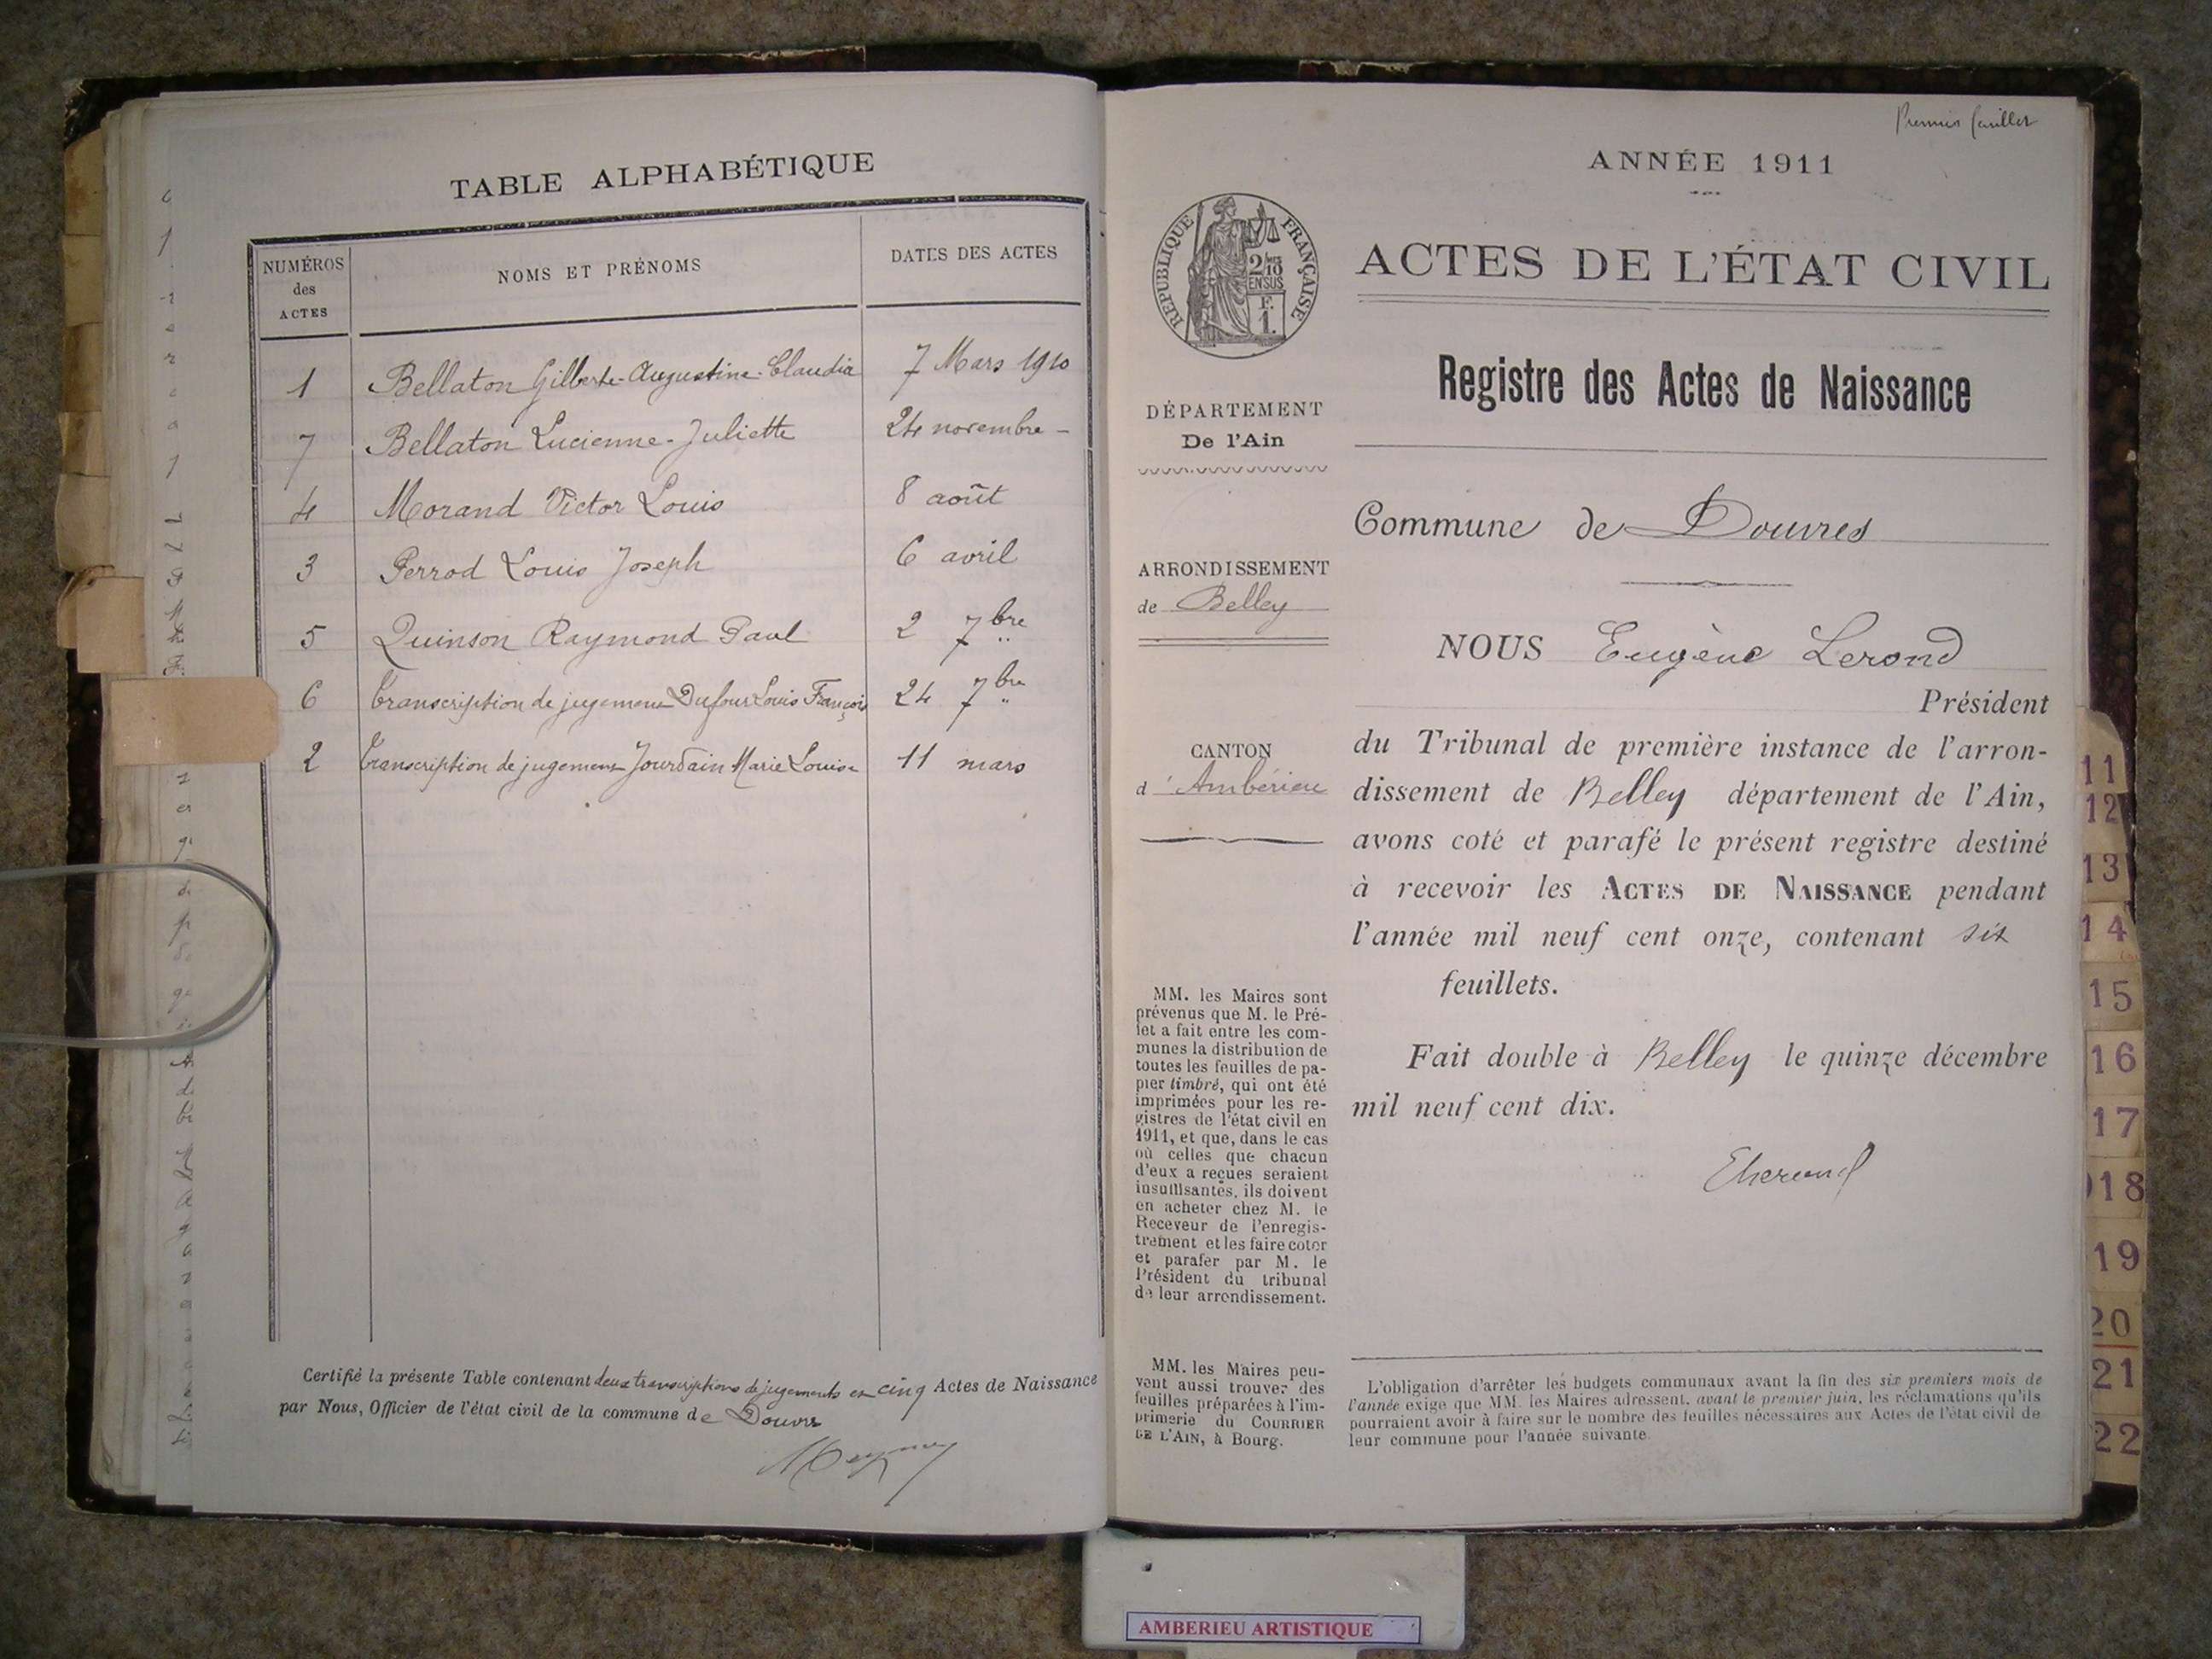 TABLE ALPHABÉTIQUE
NUMÉROS des ACTES
NOMS ET PRÉNOMS
DATES DES ACTES
1 Bellaton Gilberte-Augustine-Claudia 7 Mars 1910
7 Bellaton Lucienne-Juliette 24 novembre -
4 Morand Victor Louis 8 août
3 Perrod Louis Joseph 6 avril
5 Quinson Raymond Paul 2 7bre
6 Transcription de jugement Dufour Louis François 24 7bre
2 Transcription de jugement Jourdain Marie Louise 11 mars
Certifié la présente Table contenant deux transcriptions de jugements et cinq Actes de Naissance
par Nous, Officier de l'état civil de la commune de Douvres
Premier feuillet
ANNÉE 1911
RÉPUBLIQUE FRANÇAISE
2/10
EN SUS
F.
1.
ACTES DE L'ÉTAT CIVIL
Registre des Actes de Naissance
DÉPARTEMENT
De l'Ain
ARRONDISSEMENT
de Belley
CANTON
d'Ambérieu
MM. les Maires sont
prévenus que M. le Pré-
fet a fait entre les com-
munes la distribution de
toutes les feuilles de pa-
pier timbré, qui ont été
imprimées pour les re-
gistres de l'état civil en
1911, et que, dans le cas
où celles que chacun
d'eux a reçues seraient
insuffisantes, ils doivent
en acheter chez M. le
Receveur de l'enregis-
trement et les faire coter
et parafer par M. le
Président du tribunal
de leur arrondissement.
MM. les Maires peu-
vent aussi trouver des
feuilles préparées à l'im-
primerie du COURRIER
DE L'AIN, à Bourg.
Commune de Douvres
NOUS Eugène Lerond
Président
du Tribunal de première instance de l'arron-
dissement de Belley département de l'Ain,
avons coté et parafé le présent registre destiné
à recevoir les ACTES DE NAISSANCE pendant
l'année mil neuf cent onze, contenant six
feuillets.
Fait double à Belley le quinze décembre
mil neuf cent dix.
L'obligation d'arrêter les budgets communaux avant la fin des six premiers mois de
l'année exige que MM. les Maires adressent, avant le premier juin, les réclamations qu'ils
pourraient avoir à faire sur le nombre des feuilles nécessaires aux Actes de l'état civil de
leur commune pour l'année suivante.
11
12
13
14
15
16
17
18
19
20
21
22
AMBERIEU ARTISTIQUE